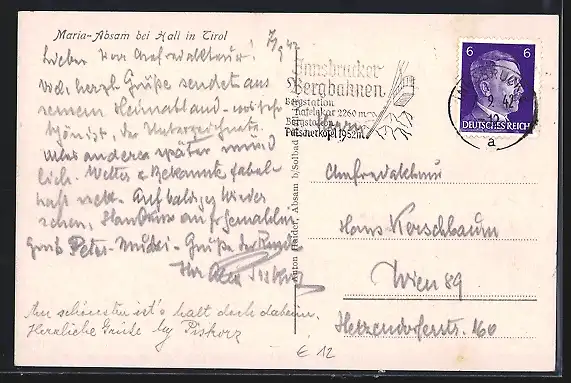 Maria-Absam bei Hall in Tirol
7/9 42
Lieber Herr Chefredakteur!
viele herzl. Grüße sendet aus
seinem Heimatland
schönist, der Unterzeichnete.
Alles andere später münd
lich. Wetter u. Bekannte fabel-
haft nett. Auf baldiges Wieder
sehen, Handkuss an Ihre Gemahlin
Gruß Peter- Grüße der Runde
Ihr Alex Piskorz
Am schönsten ist's halt doch daheim.
Herzliche Grüße Piskorz
Anton Haider, Absam b/Solbad
Innsbrucker
Bergbahnen
Bergstation
Hafelekar 2260 m
Bergstation
Patscherkofel 1952 m
6 6
DEUTSCHES REICH
INNSBRUCK
9. 42
12
a
Chefredakteur
Hans Kerschbaum
Wien 89
Hetzendorferstr. 160
€ 12